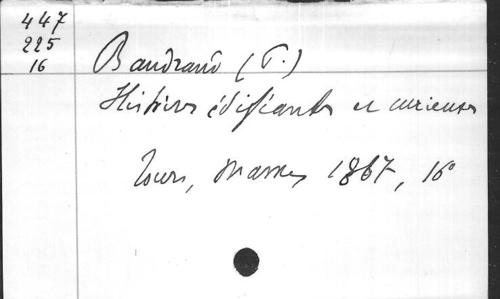 447
225
16
Baudrand (P.)
Histoires édifiantes et curieuses
Tours, Mame, 1867, 16°